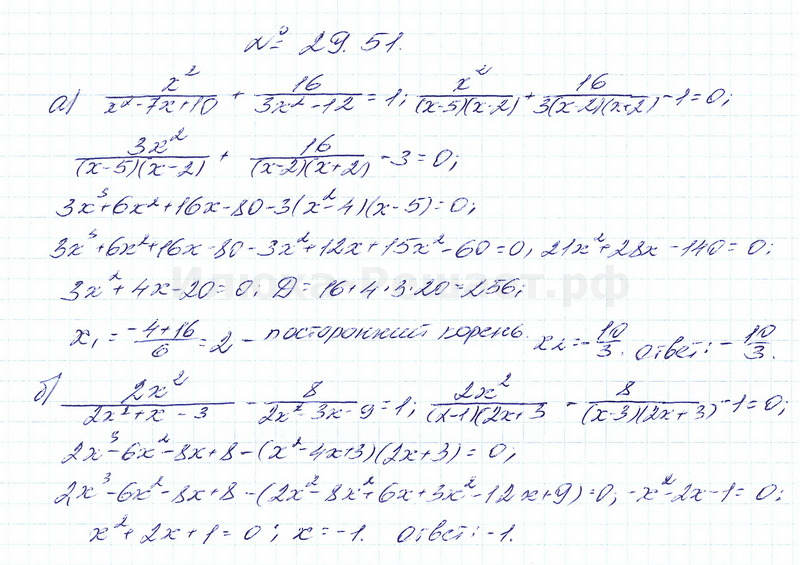 № 29.51.
а) x²/(x²-7x+10) + 16/(3x²-12) = 1; x²/((x-5)(x-2)) + 16/(3(x-2)(x+2)) - 1 = 0;
3x²/((x-5)(x-2)) + 16/((x-2)(x+2)) - 3 = 0;
3x³+6x²+16x-80-3(x²-4)(x-5)=0;
3x³+6x²+16x-80-3x²+12x+15x²-60=0, 21x²+28x-140=0;
3x²+4x-20=0; D=16+4·3·20=256;
x₁ = (-4+16)/6 = 2 - посторонний корень. x₂ = -10/3. Ответ: -10/3.
б) 2x²/(2x²+x-3) - 8/(2x²-3x-9) = 1; 2x²/((x-1)(2x+3) - 8/((x-3)(2x+3)) - 1 = 0;
2x³-6x²-8x+8-(x²-4x+3)(2x+3)=0;
2x³-6x²-8x+8-(2x²-8x²+6x+3x²-12x+9)=0, -x²-2x-1=0;
x²+2x+1=0; x=-1. Ответ: -1.